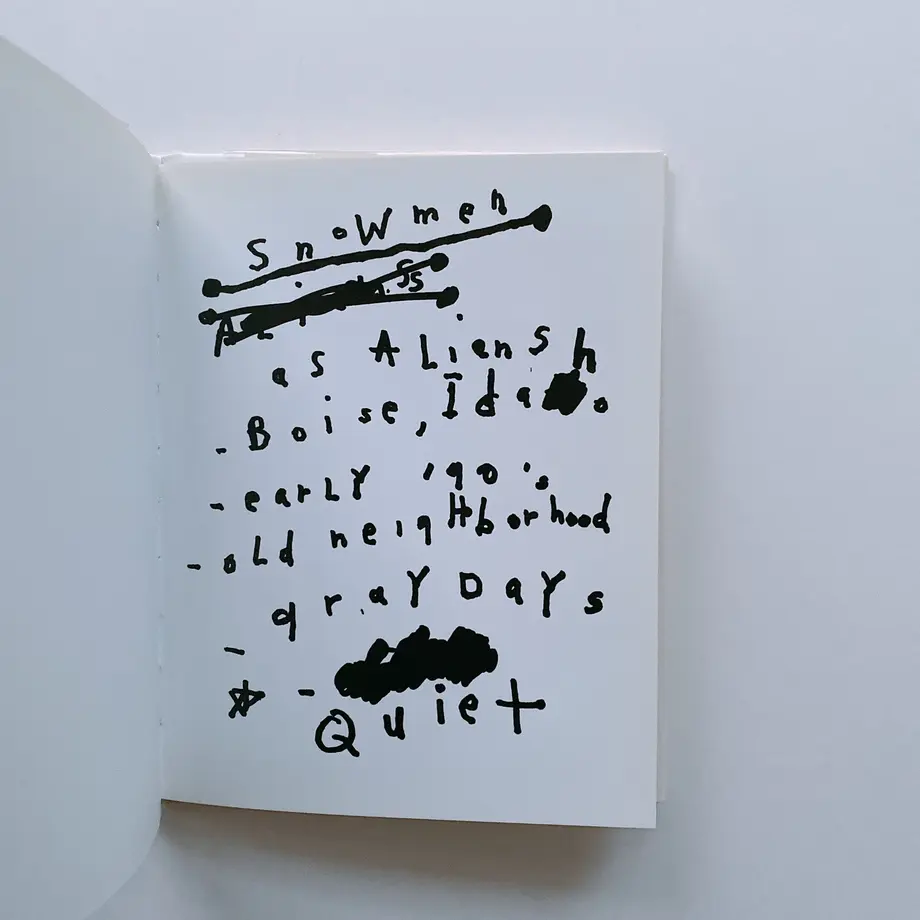 SnoWmen
as ALiens
- Boise, Idaho
- earLY '90's
- oLd neigHborhood
- graY DaYs
☆ - Quiet